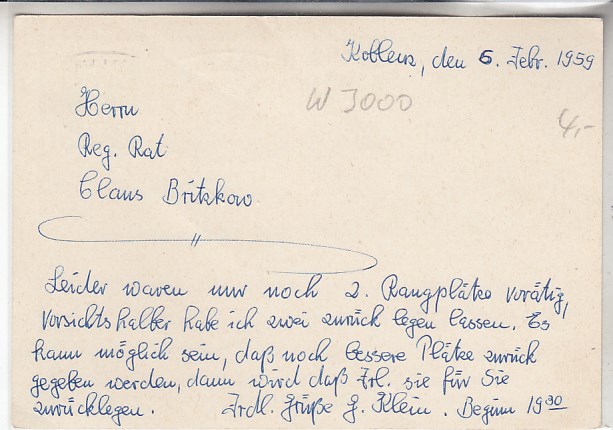 Koblenz, den 6. Febr. 1959
W 3000
4,-
Herrn
Reg. Rat
Claus Britzkow
Leider waren nur noch 2. Rangplätze vorätig,
Vorsichtshalber habe ich zwei zurück legen lassen. Es
kann möglich sein, daß noch bessere Plätze zurück
gegeben werden, dann wird daß Frl. sie für Sie
zurücklegen. Frdl. Grüße G. Klein. Beginn 19 30